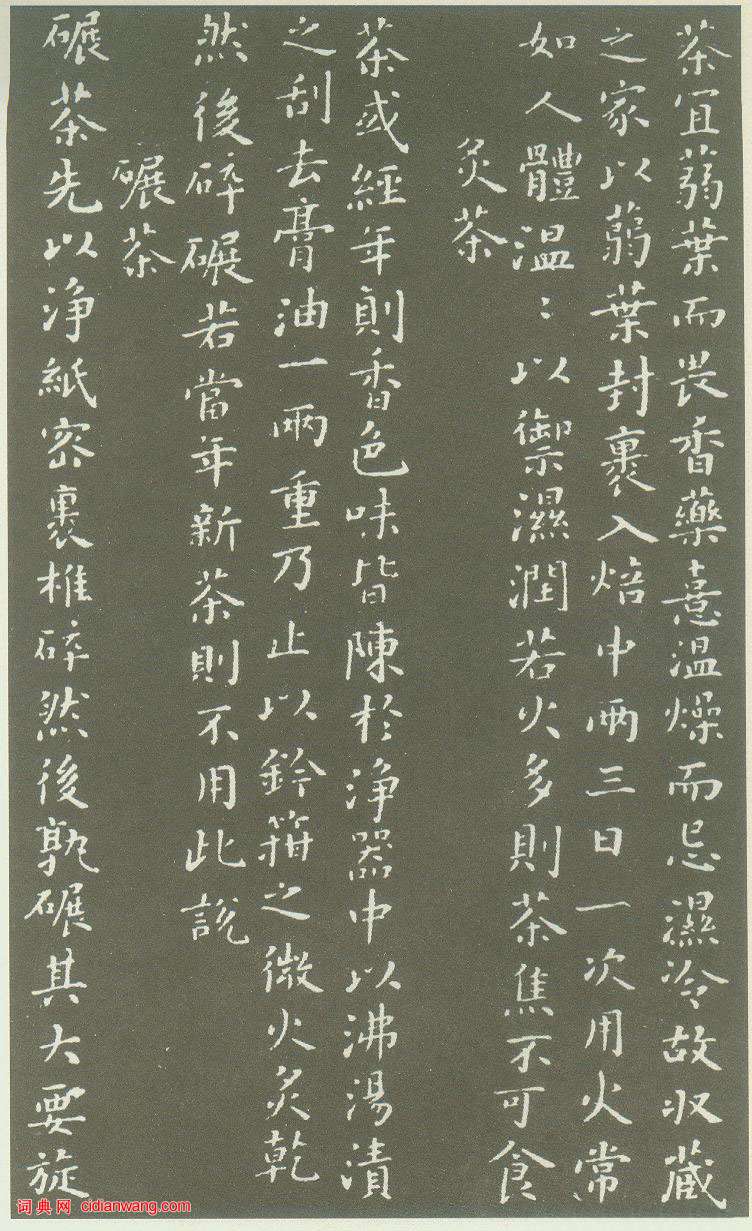 茶宜蒻葉而畏香藥憙温燥而忌濕冷故収蔵
之家以蒻葉封裹入焙中兩三日一次用火常
如人體温〻以禦濕潤若火多則茶焦不可食
炙茶
茶或經年則香色味皆陳於浄器中以沸湯漬
之刮去膏油一兩重乃止以鈐箝之微火炙乾
然後碎碾若當年新茶則不用此説
碾茶
碾茶先以浄紙密裹椎碎然後孰碾其大要旋
词典网 cidianwang.com